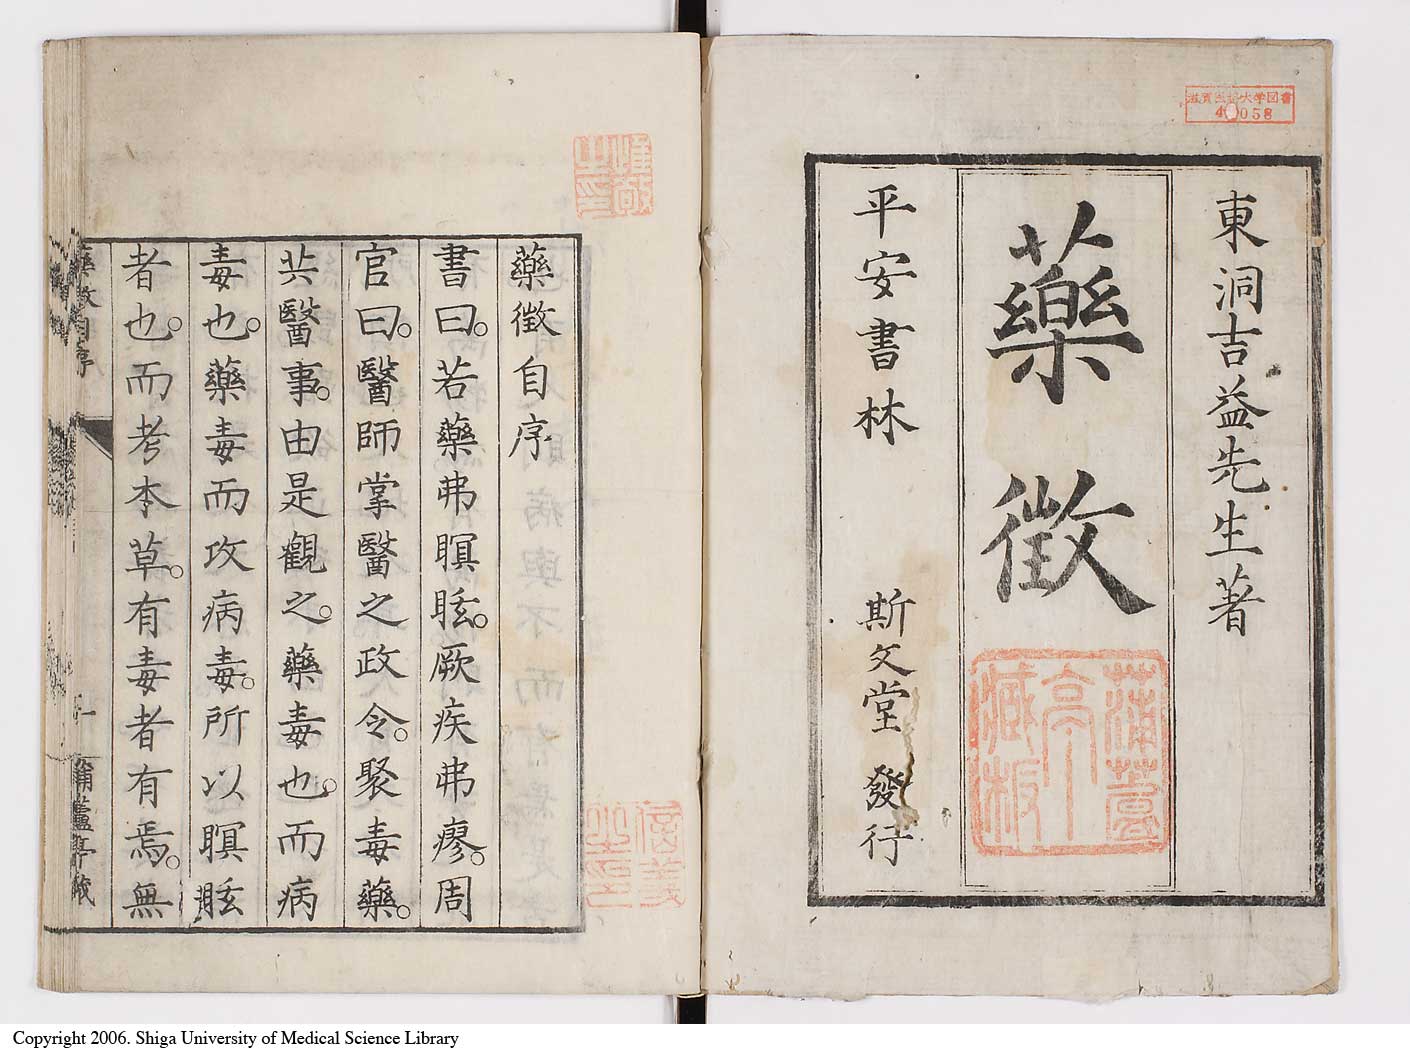 東洞吉益先生著
藥徵
平安書林 斯文堂發行
藏板
藥徵自序
書曰。若藥弗瞑眩。厥疾弗瘳。周
官曰。醫師掌醫之政令。聚毒藥。
共醫事。由是觀之。藥毒也。而病
毒也。藥毒而攻病毒。所以瞑眩
者也。而考本草。有毒者有焉。無
藥徵自序
Copyright 2006. Shiga University of Medical Science Library